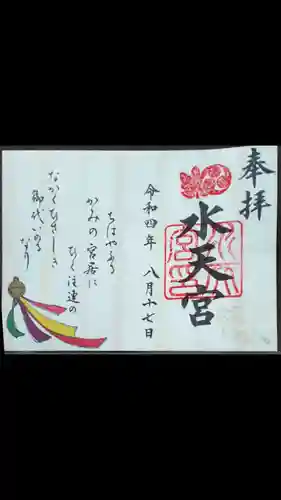 奉拝
水天宮
令和四年 八月十七日
ちはやふる
かみの宮居に
ひく注連の
なかくひさしき
御代いのる
なり